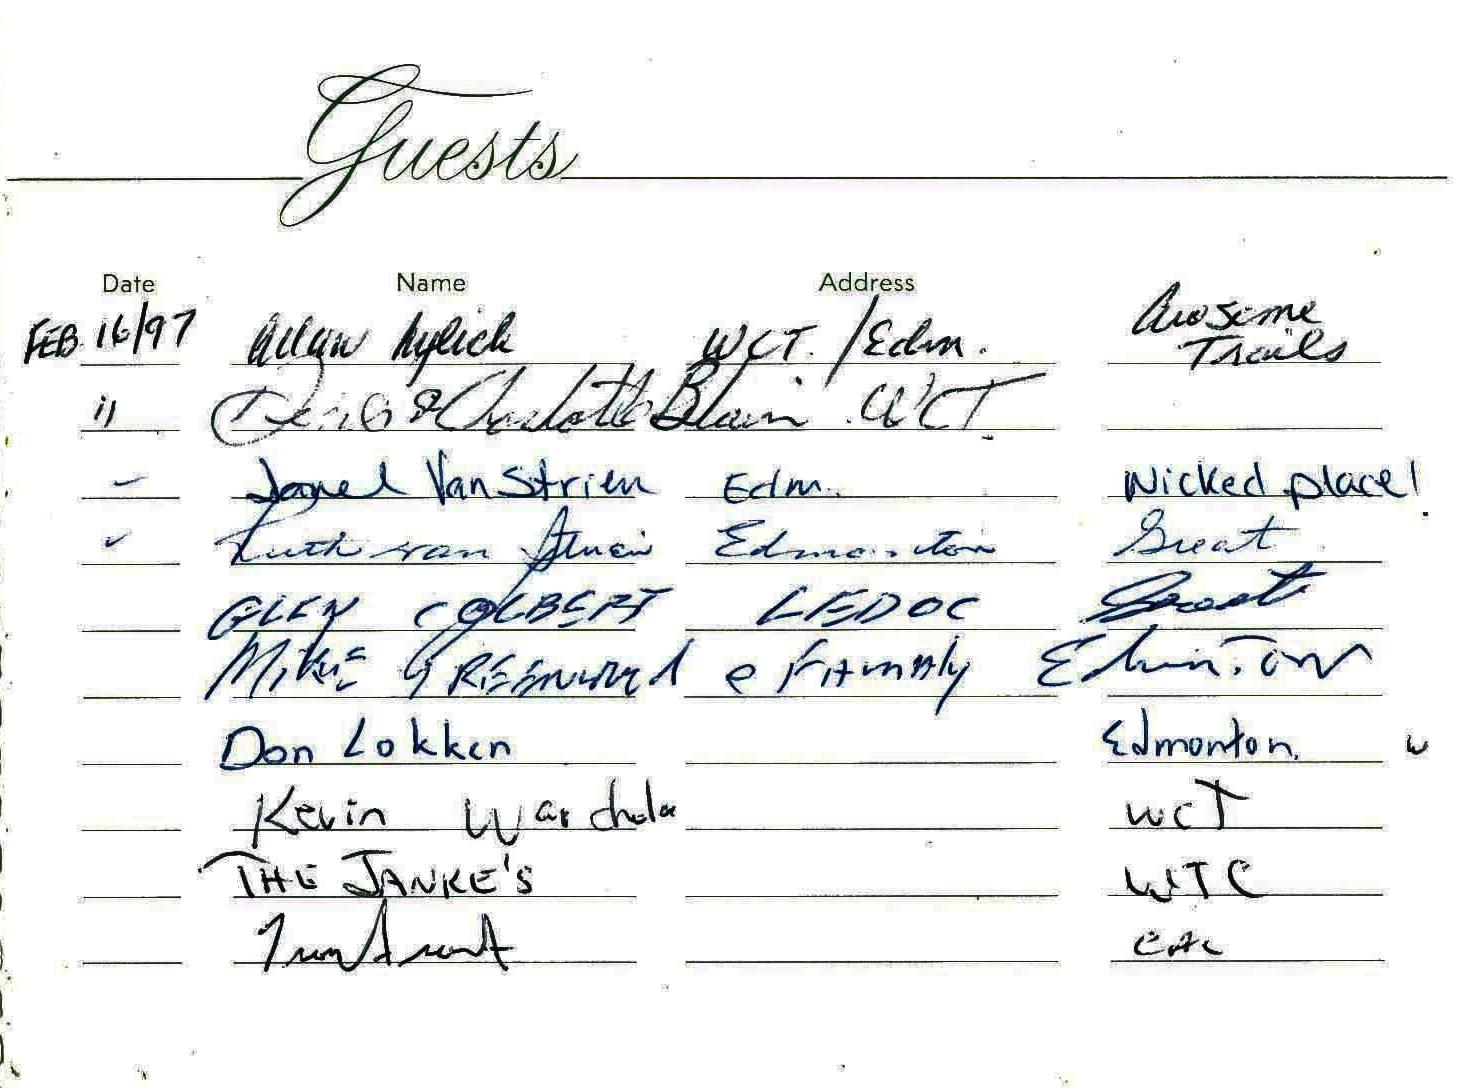 Guests
Date Name Address
FEB. 16/97 Allan WCT. /Edm. Awosome Trails
" & Charlotte Blain WCT.
Janel Van Strien Edm. Wicked place!
Ruth van Edmonton Great
GLEN COLBERT LEDOC Great
MIKE GREENWOOD & FAMILY EdmonTON
Don Lokken Edmonton.
Kevin Warchola WCT
THE JANKE'S WTC